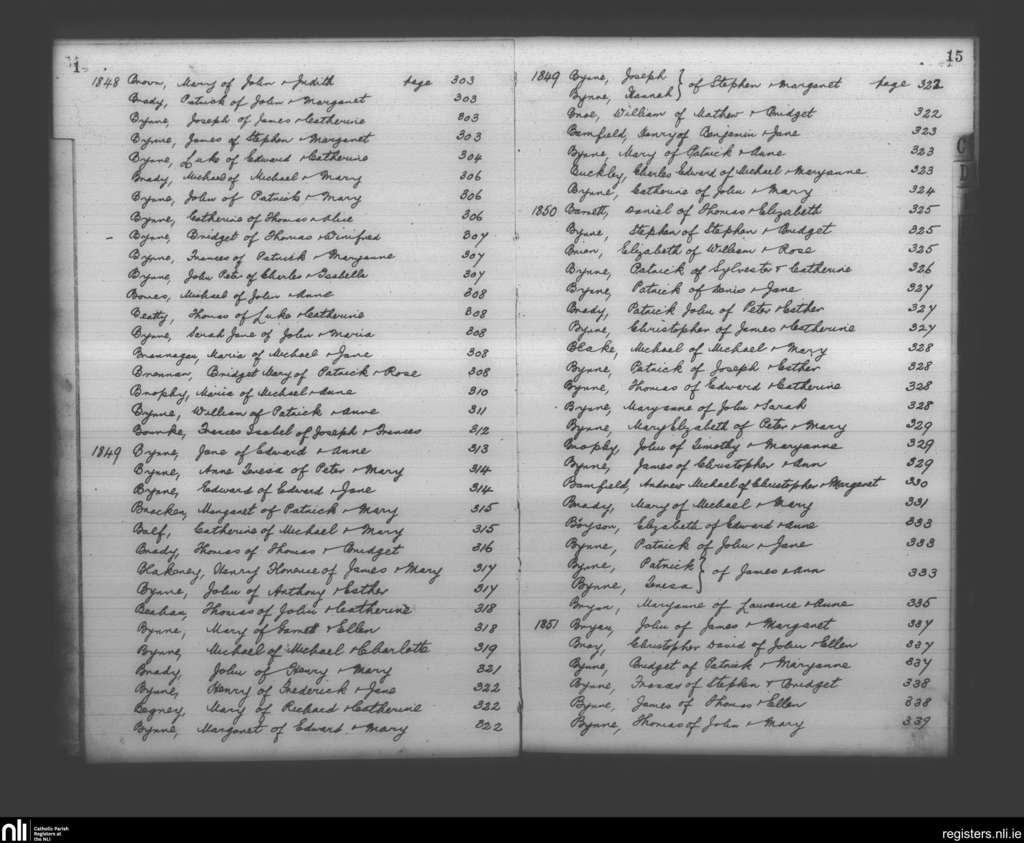 1
1848 Brown, Mary of John & Judith page 303
Brady, Patrick of John & Margaret 303
Byrne, Joseph of James & Catherine 303
Byrne, James of Stephen & Margaret 303
Byrne, Luke of Edward & Catherine 304
Brady, Michael of Michael & Mary 306
Byrne, John of Patrick & Mary 306
Byrne, Catherine of Thomas & 306
Byrne, Bridget of Thomas & Winifred 307
Byrne, Frances of Patrick & Maryanne 307
Byrne, John Peter of Charles & Isabella 307
Bones, Michael of John & Anne 308
Beatty, Thomas of Luke & Catherine 308
Byrne, Sarah Jane of John & Maria 308
Brannagan, Maria of Michael & Jane 308
Brennan, Bridget Mary of Patrick & Rose 308
Brophy, Maria of Michael & Anne 310
Byrne, William of Patrick & Anne 311
Bourke, Frances Isabel of Joseph & Frances 312
1849 Byrne, Jane of Edward & Anne 313
Byrne, Anne Teresa of Peter & Mary 314
Byrne, Edward of Edward & Jane 314
Bracken, Margaret of Patrick & Mary 315
Balf, Catherine of Michael & Mary 315
Brady, Thomas of Thomas & Bridget 316
Blakeney, Henry Florence of James & Mary 317
Byrne, John of Anthony & Esther 317
Beahan, Thomas of John & Catherine 318
Byrne, Mary of Garret & Ellen 318
Byrne, Michael of Michael & Charlotte 319
Brady, John of Henry & Mary 321
Byrne, Henry of Frederick & Jane 322
Begney, Mary of Richard & Catherine 322
Byrne, Margaret of Edward & Mary 322
15
1849 Byrne, Joseph } of Stephen & Margaret page 322
Byrne, Hannah }
William of Mathew & Bridget 322
Bamfield, Henry of Benjamin & Jane 323
Byrne, Mary of Patrick & Anne 323
Buckley, Charles Edward of Michael & Maryanne 323
Byrne, Catherine of John & Mary 324
1850 Barrett, Daniel of Thomas & Elizabeth 325
Byrne, Stephen of Stephen & Bridget 325
Brien, Elizabeth of William & Rose 325
Byrne, Patrick of Sylvester & Catherine 326
Byrne, Patrick of Denis & Jane 327
Brady, Patrick John of Peter & Esther 327
Byrne, Christopher of James & Catherine 327
Blake, Michael of Michael & Mary 328
Byrne, Patrick of Joseph & Esther 328
Byrne, Thomas of Edward & Catherine 328
Byrne, Maryanne of John & Sarah 328
Byrne, Mary Elizabeth of Peter & Mary 329
Brophy, John of Timothy & Maryanne 329
Byrne, James of Christopher & Ann 329
Bamfield, Andrew Michael of Christopher & Margaret 330
Brady, Mary of Michael & Mary 331
Boyson, Elizabeth of Edward & Anne 333
Byrne, Patrick of John & Jane 333
Byrne, Patrick } of James & Ann 333
Byrne, Teresa }
Bryan, Maryanne of Laurence & Anne 335
1851 Bryan, John of James & Margaret 337
Bray, Christopher David of John & Ellen 337
Byrne, Bridget of Patrick & Maryanne 337
Byrne, of Stephen & Bridget 338
Byrne, James of Thomas & Ellen 338
Byrne, Thomas of John & Mary 339
C
D
nli Catholic Parish
Registers at
the NLI
registers.nli.ie